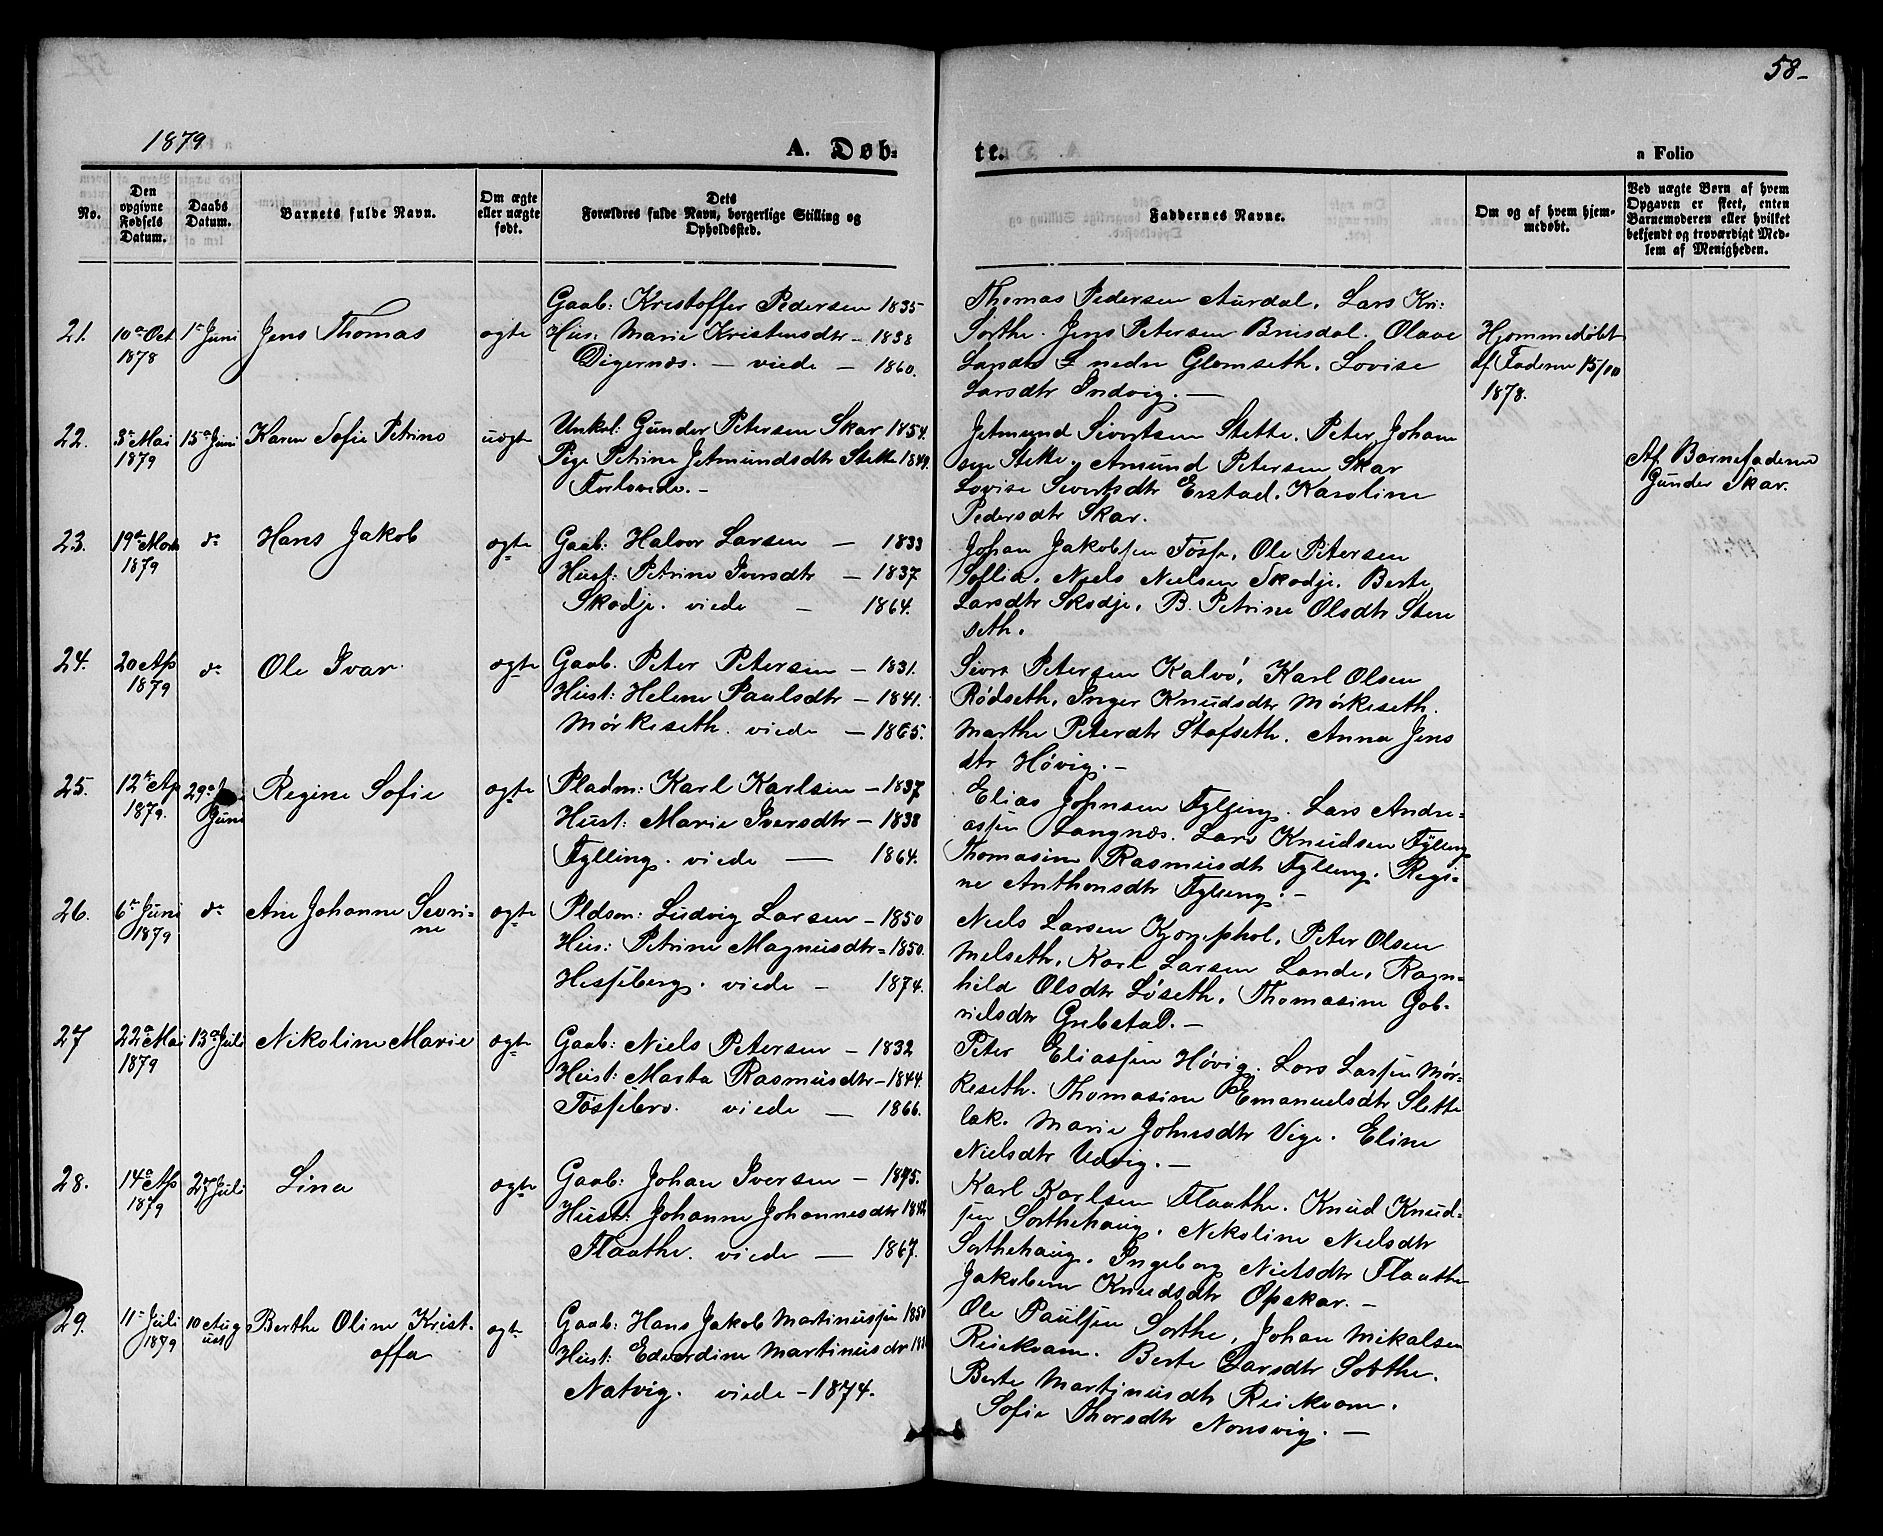 58-
1879
A. Døb-
te.
a Folio
No.
Den opgivne Fødsels Datum.
Daabs Datum.
Barnets fulde Navn.
Om ægte eller uægte født.
Dets Forældres fulde Navn, borgerlige Stilling og Opholdssted.
Faddernes Navne.
Om og af hvem hjemmedøbt.
Ved uægte Børn af hvem Opgaven er skeet, enten Barnemoderen eller hvilket bekjendt og troværdigt Medlem af Menigheden.
21.
10de Oct
1878
1e Juni
Jens Thomas
ægte
Gaab: Kristoffer Pedersen 1835
Hus: Marie Kristensdtr - 1838
Digernæs. - viede - 1860.
Thomas Pedersen Aurdal. Lars Kri:
Sorthe. Jens Petersen Brusdal. Olave
nedre Glomseth. Lovise
Larsdtr Indvig. -
Hjemmedøbt
af Faderen 15/10
1878.
22.
3e Mai
1879
15de Juni
Karen Sofie Petrine
uægte
Unkel: Gunder Petersen Skar 1854.
Pige Petrine Jetmundsdtr Stette 1849.
Forlovede. -
Jetmund Sivertsen Stette. Peter Johan
sen Stette. Amund Petersen Skar
Lovise Sivertsdtr Erstad. Karoline
Pedersdtr Skar.
Af Barnefaderen
Gunder Skar.
23.
19de Marts
1879
do
Hans Jakob
ægte
Gaab: Halvor Larsen - 1833
Hust: Petrine Iversdtr - 1837
Skodje. viede - 1864.
Johan Jakobsen Tøsse. Ole Petersen
Sollie. Niels Nielsen Skodje. Berte
Larsdtr Skodje. B. Petrine Olsdtr Sten
seth.
24.
20 Ap
1879
do
Ole Ivar
ægte
Gaab. Peter Petersen - 1831.
Hust: Helene Paulsdtr - 1841.
Mørkeseth. viede - 1865.
Sivert Petersen Kalvø. Karl Olsen
Rødseth. Inger Knudsdtr Mørkeseth.
Marthe Peterdtr Stafseth. Anna Jens
dtr Høvig. -
25.
12te Ap
1879.
29de
Juni
Regine Sofie
ægte
Pladm: Karl Karlsen - 1837
Hust: Marie Iversdtr - 1838
Fylling. viede - 1864.
Elias Johnsen Fylling. Lars Andre-
assen Langnæs. Lars Knudsen Fylling
Thomasine Rasmusdt Fylling. Regi-
ne Anthonsdtr Fylling. -
26.
6te Juni
1879
do
Ane Johanne Sevri-
ne
ægte
Pldsm: Ludvig Larsen - 1850
Hus: Petrine Magnusdtr - 1850.
Hesseberg. viede - 1874.
Niels Larsen Peter Olsen
Melseth. Karl Larsen Lande. Ragn-
hild Olsdtr Løseth. Thomasine Gab-
rielsdtr Grebstad. -
27
22de Mai
1879
13de Juli
Nikoline Marie
ægte
Gaab: Niels Petersen - 1832
Hust: Marta Rasmusdtr - 1844.
Tøssebro. viede - 1866.
Peter Eliassen Høvig. Lars Larsen Mør-
keseth. Thomasine Emanuelsdtr Slette
bak. Marie Johnsdtr Vige. Eline
Nielsdtr Udvig. -
28.
14de Ap
1879
27 Juli
Lina
ægte
Gaab: Johan Iversen - 1845.
Hust: Johanne Johannesdtr 1842
Flaathe. viede - 1867.
Karl Karlsen Flaathe. Knud Knud-
sen Sorthehaug. Nikoline Nielsdtr
Sorthehaug. Ingeborg Nielsdtr Flaathe
Jakobine Knudsdtr Opskar. -
29.
11te Juli
1879
10 Aug
ust
Berthe Oline Krist-
offa
ægte
Gaab: Hans Jakob Martinussen 1850
Hust: Edvardine Martinusdr
Natvig. viede - 1874.
Ole Paulsen Sorthe. Johan Mikalsen
Reiekvam. Berte Larsdtr Sorthe.
Berte Martinusdt Reiekvam.
Sofie Thorsdtr Nonsvig. -